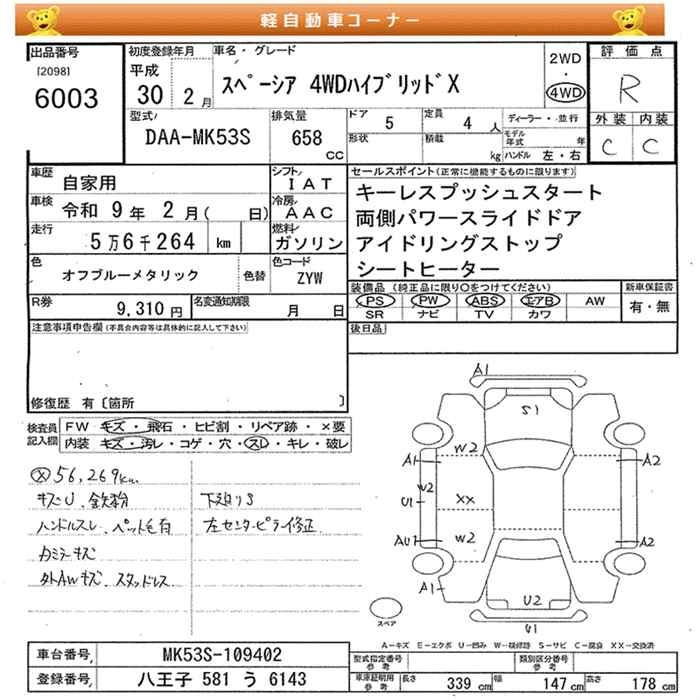 軽自動車コーナー
出品番号 [2098] 6003
初度登録年月 平成 30 2月
車名・グレード スペーシア 4WDハイブリッドX
2WD・4WD
評価点 R
外装 内装 C C
型式 DAA-MK53S
排気量 658 CC
ドア 5 定員 4 人
形状 積載 kg
ディーラー・並行
モデル年式 年
ハンドル 左・右
車歴 自家用
シフト IAT
車検 令和 9年 2月( 日)
冷房 AAC
走行 5万6千264 km
燃料 ガソリン
色 オフブルーメタリック 色替
色コード ZYW
R券 9,310円
名変通知期限 月 日
セールスポイント(正常に機能するものに限ります)
キーレスプッシュスタート
両側パワースライドドア
アイドリングストップ
シートヒーター
装備品 (純正品に限り○をつけてください) 新車保証書
PS PW ABS エアB AW 有・無
SR ナビ TV カワ
後日品
注意事項申告欄(不具合内容等は具体的に記入して下さい)
修復歴 有〔箇所 〕
検査員記入欄
FW キズ・飛石・ヒビ割・リペア跡・×要
内装 キズ・汚レ・コゲ・穴・スレ・キレ・破レ
ⓧ56,269km
キズU、鉄粉 下廻りS
ハンドルスレ、ペット毛有 左センターピラー修正
カミラーキズ
外AWキズ、スタッドレス
A1
S1
W2
A1 A2
W2
U1 XX
AU1 W2 A2
A1
U2
U1
スペア
A-キズ E-エクボ U-凹み W-補修跡 S-サビ C-腐食 XX-交換済
車台番号 MK53S-109402
登録番号 八王子 581 う 6143
型式指定番号 参考 類別区分番号 参考
車庫証明用 参考 長さ 339 cm 幅 147 cm 高さ 178 cm